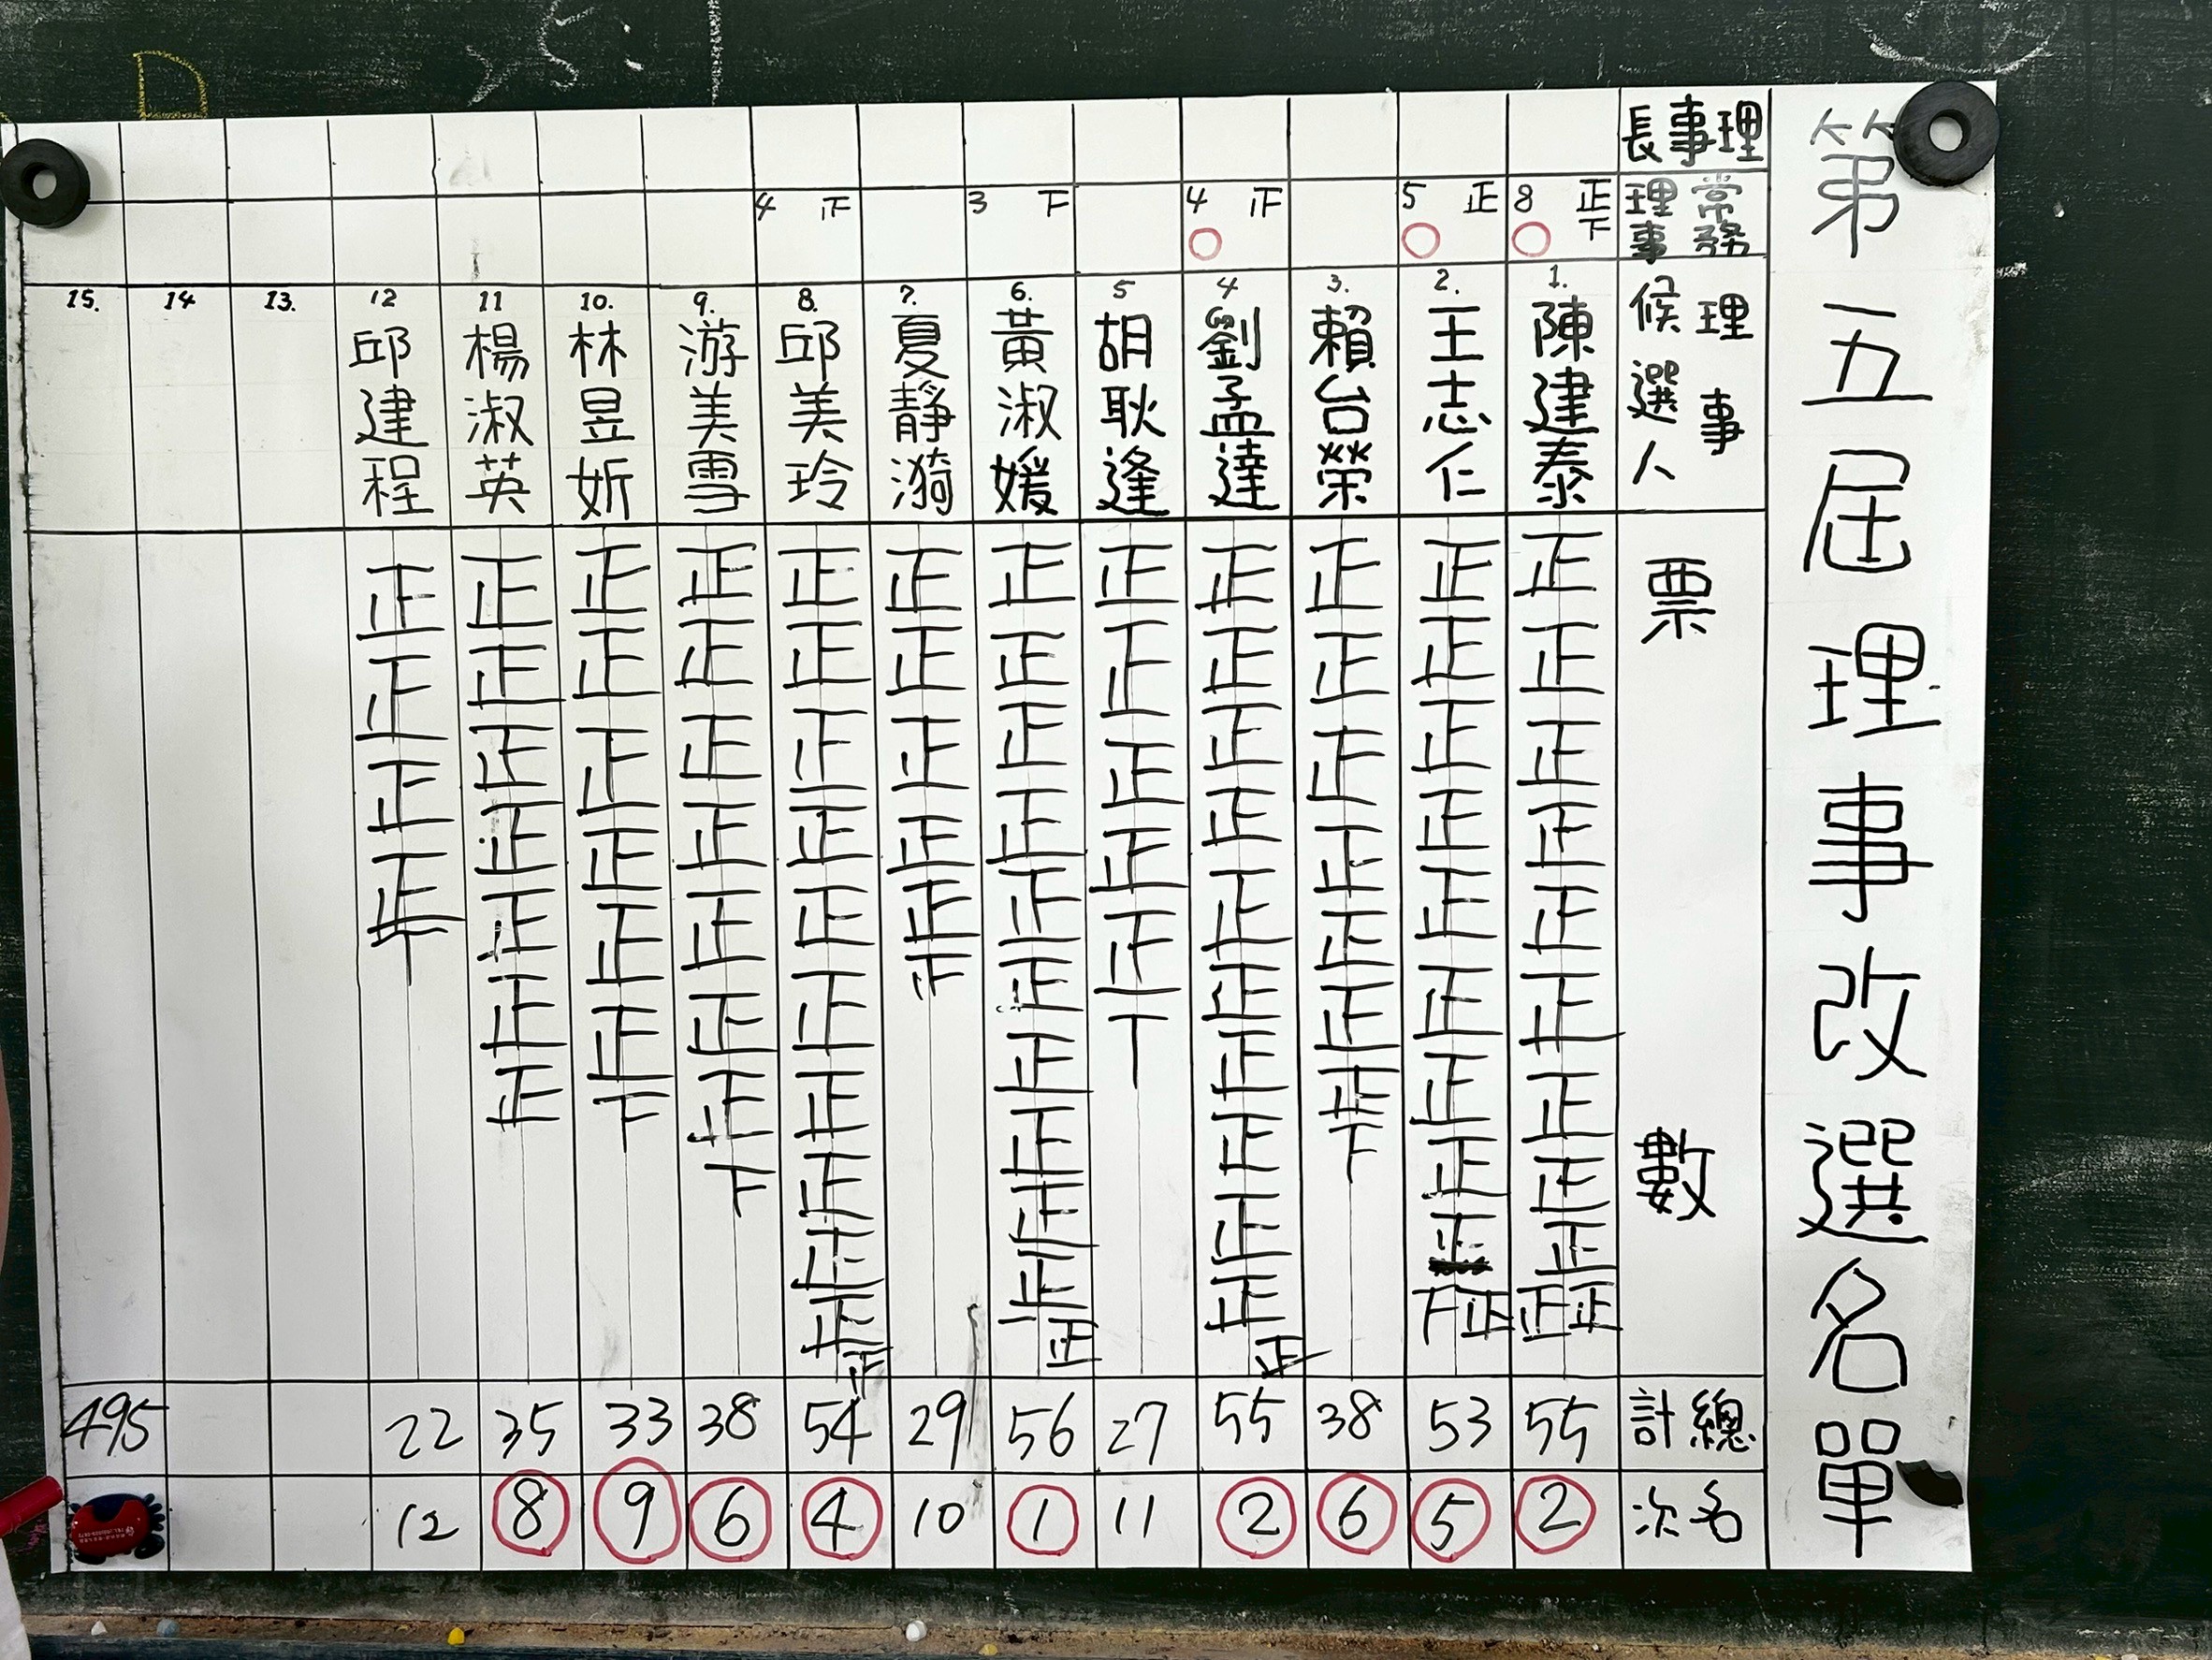 第五屆理事改選名單
理事長
常務理事
理事候選人
票數
總計
名次
8 正下
1. 陳建泰
正正正正正正正正正正正
55
2
5 正
2. 王志仁
正正正正正正正正正正下
53
5
3. 賴台榮
正正正正正正正下
38
6
4 正
4 劉孟達
正正正正正正正正正正正
55
2
5 胡耿逢
正正正正正丅
27
11
3 下
6. 黃淑媛
正正正正正正正正正正正
56
1
7. 夏靜漪
正正正正正正
29
10
4 正
8. 邱美玲
正正正正正正正正正正正
54
4
9. 游美雪
正正正正正正正下
38
6
10. 林昱妡
正正正正正正下
33
9
11 楊淑英
正正正正正正正
35
8
12 邱建程
正正正正丅
22
12
13.
14
15.
495